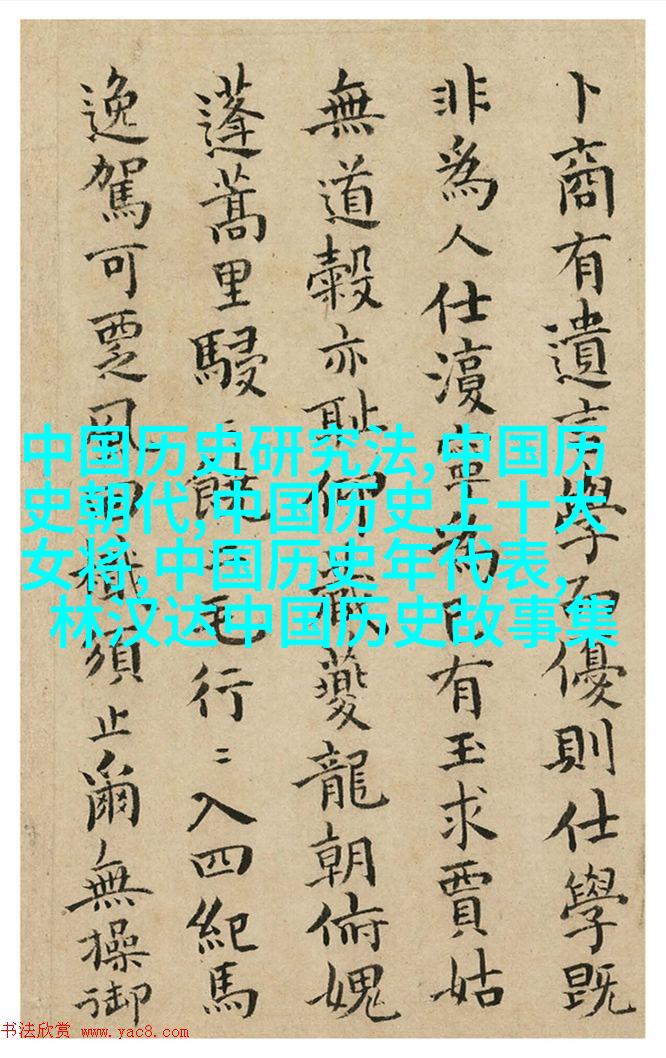 卜商有遺言學而優則仕學既
非為人仕寧為己有玉求賈姑
無道穀亦恥仰夔龍朝俯媿
蓬蒿里駸〻饒二毛行〻入四紀馬
逸駕可覂須止爾無操御
中国历史研究法,中国历
史朝代,中国历史上十大
女将,中国历史年代表,
林汉达中国历史故事集
书法欣赏 www.yac8.com